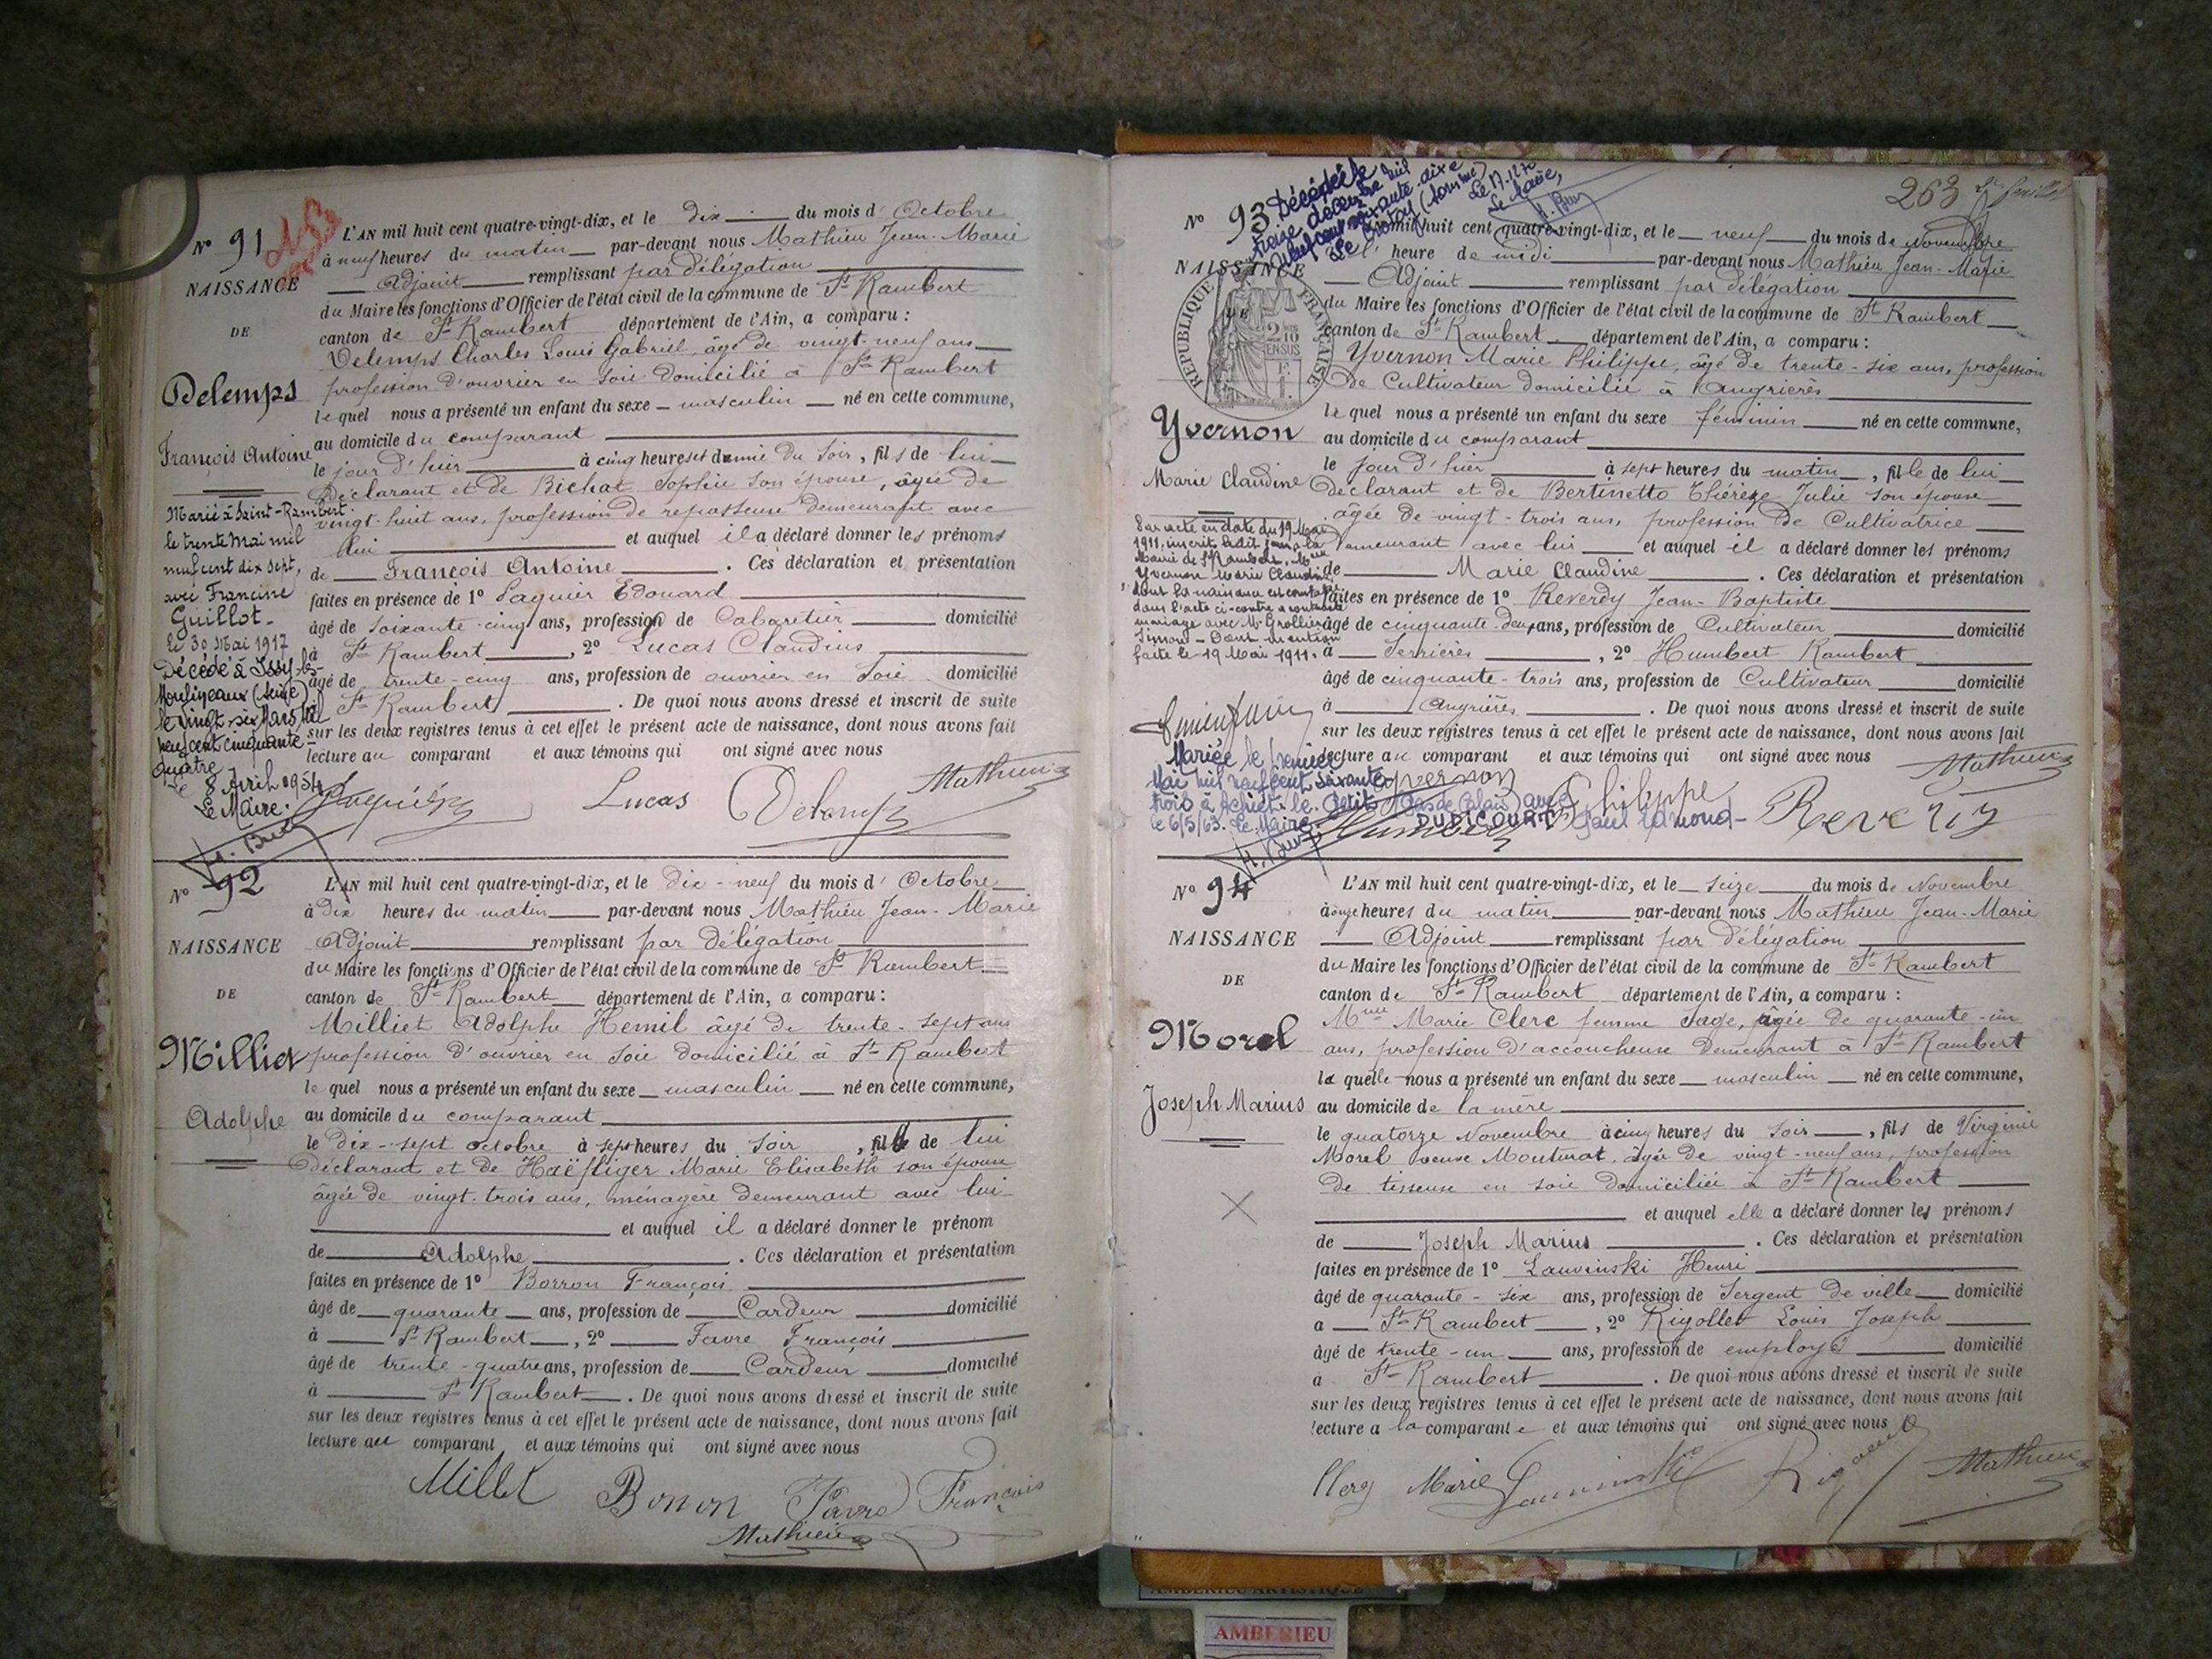 N° 91
NAISSANCE
DE
Delemps
François Antoine
Marié à Saint-Rambert
le trente Mai mil
neuf cent dix sept,
avec Francine
Guillot.
le 30 Mai 1917
Décédé à Issy-les-
Moulineaux (Seine)
le vingt-six Mars mil
neuf cent cinquante-
quatre
le 8 Avril 1954
Le Maire.
L'AN mil huit cent quatre-vingt-dix, et le dix du mois d' Octobre
à neuf heures du matin par-devant nous Mathieu Jean-Marie
Adjoint remplissant par délégation
du Maire les fonctions d'Officier de l'état civil de la commune de St Rambert
canton de St Rambert département de l'Ain, a comparu :
Delemps Charles Louis Gabriel, âgé de vingt-neuf ans
profession d'ouvrier en soie domicilié à St Rambert
lequel nous a présenté un enfant du sexe masculin né en cette commune,
au domicile du comparant
le jour d'hier à cinq heures et demie du soir, fils de lui
déclarant et de Bichat Sophie son épouse, âgée de
vingt-huit ans, profession de repasseuse demeurant avec
lui et auquel il a déclaré donner les prénoms
de François Antoine . Ces déclaration et présentation
faites en présence de 1° Paquier Edouard
âgé de soixante-cinq ans, profession de Cabaretier domicilié
à St Rambert , 2° Lucas Claudius
âgé de trente-cinq ans, profession de ouvrier en soie domicilié
à St Rambert . De quoi nous avons dressé et inscrit de suite
sur les deux registres tenus à cet effet le présent acte de naissance, dont nous avons fait
lecture au comparant et aux témoins qui ont signé avec nous
Mathieu
Lucas Delemps
N° 92
NAISSANCE
DE
Milliet
Adolphe
L'AN mil huit cent quatre-vingt-dix, et le dix-neuf du mois d' Octobre
à dix heures du matin par-devant nous Mathieu Jean-Marie
Adjoint remplissant par délégation
du Maire les fonctions d'Officier de l'état civil de la commune de St Rambert
canton de St Rambert département de l'Ain, a comparu :
Milliet Adolphe Hemil âgé de trente-sept ans
profession d'ouvrier en soie domicilié à St Rambert
lequel nous a présenté un enfant du sexe masculin né en cette commune,
au domicile du comparant
le dix-sept octobre à sept heures du soir , fils de lui
déclarant et de Haëfliger Marie Elisabeth son épouse
âgée de vingt-trois ans, ménagère demeurant avec lui
et auquel il a déclaré donner le prénom
de Adolphe . Ces déclaration et présentation
faites en présence de 1° Borron François
âgé de quarante ans, profession de Cardeur domicilié
à St Rambert , 2° Favre François
âgé de trente-quatre ans, profession de Cardeur domicilié
à St Rambert . De quoi nous avons dressé et inscrit de suite
sur les deux registres tenus à cet effet le présent acte de naissance, dont nous avons fait
lecture au comparant et aux témoins qui ont signé avec nous
Millet Bonon Favre François
Mathieu
263
N° 93
Décédée le
treize décembre mil
neuf cent soixante-dix
Le Crotoy (Somme)
Le 17.12.70
Le Maire,
NAISSANCE
DE
REPUBLIQUE FRANÇAISE
2/10 EN SUS
Yvernon
Marie Claudine
Par acte en date du 19 Mai
1911, inscrit ledit jour à la
Mairie de St Rambert, Melle
Yvernon Marie Claudine
dont la naissance est constatée
dans l'acte ci-contre a contracté
mariage avec Mr Grollier
Simon - Dont mention
faite le 19 Mai 1911.
Mariée le premier
Mai mil neuf cent soixante
trois à Achiet-le-Petit (Pas de Calais) avec
DUDICOURT Paul
le 6/5/63. Le Maire.
L'AN mil huit cent quatre-vingt-dix, et le neuf du mois de Novembre
à l' heure de midi par-devant nous Mathieu Jean-Marie
Adjoint remplissant par délégation
du Maire les fonctions d'Officier de l'état civil de la commune de St Rambert
canton de St Rambert département de l'Ain, a comparu :
Yvernon Marie Philippe, âgé de trente-six ans, profession
de Cultivateur domicilié à Angrières
lequel nous a présenté un enfant du sexe féminin né en cette commune,
au domicile du comparant
le jour d'hier à sept heures du matin , fille de lui
déclarant et de Bertinetto Thérèze Julie son épouse
âgée de vingt-trois ans, profession de Cultivatrice
demeurant avec lui et auquel il a déclaré donner les prénoms
de Marie Claudine . Ces déclaration et présentation
faites en présence de 1° Reverdy Jean-Baptiste
âgé de cinquante-deux ans, profession de Cultivateur domicilié
à Serrières , 2° Humbert Rambert
âgé de cinquante-trois ans, profession de Cultivateur domicilié
à Angrières . De quoi nous avons dressé et inscrit de suite
sur les deux registres tenus à cet effet le présent acte de naissance, dont nous avons fait
lecture au comparant et aux témoins qui ont signé avec nous
Mathieu
yvernon Philippe
Humbert Reverdy
N° 94
NAISSANCE
DE
Morel
Joseph Marius
L'AN mil huit cent quatre-vingt-dix, et le seize du mois de Novembre
à onze heures du matin par-devant nous Mathieu Jean-Marie
Adjoint remplissant par délégation
du Maire les fonctions d'Officier de l'état civil de la commune de St Rambert
canton de St Rambert département de l'Ain, a comparu :
Marie Clerc femme Sage, âgée de quarante-un
ans, profession d'accoucheuse demeurant à St Rambert
la quelle nous a présenté un enfant du sexe masculin né en cette commune,
au domicile de la mère
le quatorze Novembre à cinq heures du soir , fils de Virginie
Morel veuve Moutinat, âgée de vingt-neuf ans, profession
de tisseuse en soie domiciliée à St Rambert
et auquel elle a déclaré donner les prénoms
de Joseph Marius . Ces déclaration et présentation
faites en présence de 1° Lauvinski Henri
âgé de quarante-six ans, profession de Sergent de ville domicilié
à St Rambert , 2° Rigollet Louis Joseph
âgé de trente-un ans, profession de employé domicilié
à St Rambert . De quoi nous avons dressé et inscrit de suite
sur les deux registres tenus à cet effet le présent acte de naissance, dont nous avons fait
lecture a la comparante et aux témoins qui ont signé avec nous
Clerc Marie Mathieu
AMBERIEU ARTISTIQUE
AMBERIEU